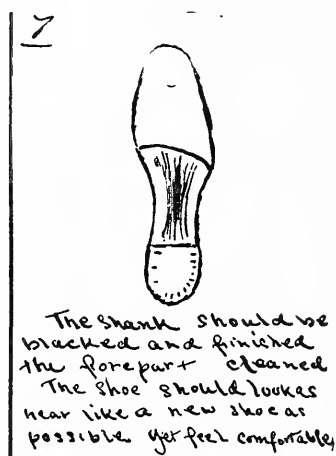 7
The shank should be
blacked and finished
the forepart cleaned
The shoe should look as
near like a new shoe as
possible yet feel comfortable,